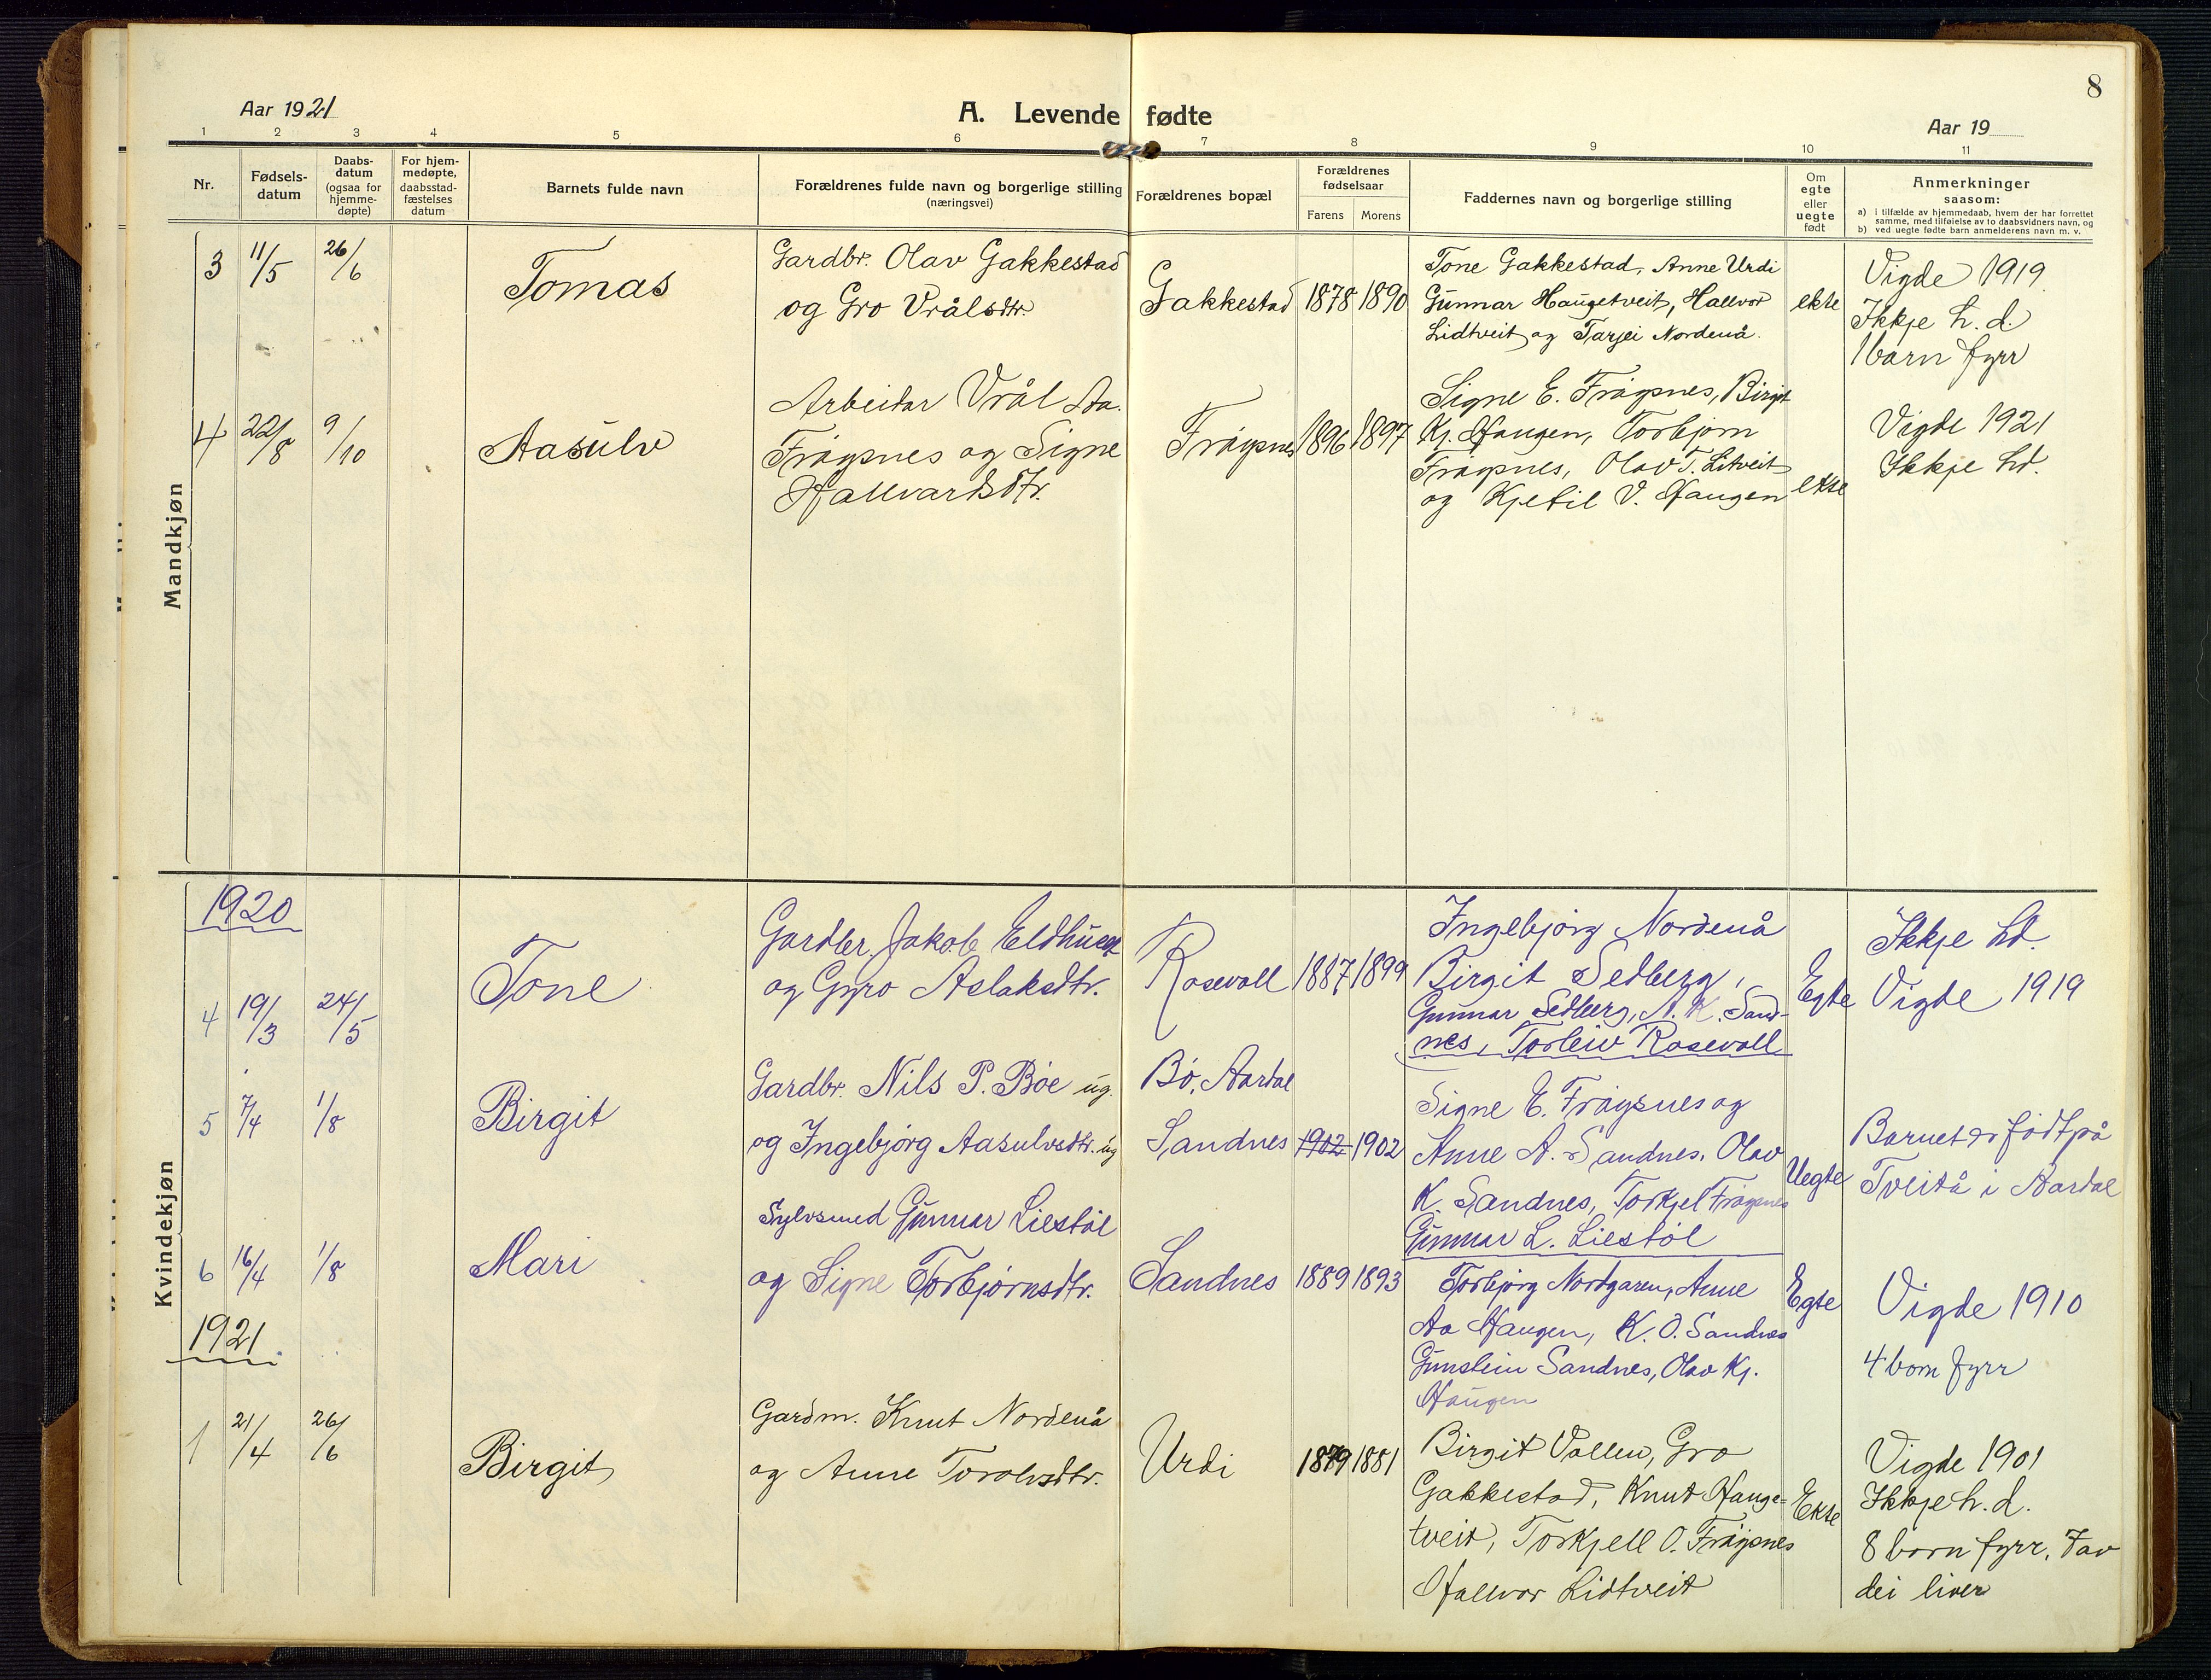 8
Aar 1921
A. Levende fødte
Aar 19
1 2 3 4 5 6 7 8 9 10 11
Nr.
Fødsels-
datum
Daabs-
datum
(ogsaa for
hjemme-
døpte)
For hjem-
medøpte,
daabsstad-
fæstelses
datum
Barnets fulde navn
Forældrenes fulde navn og borgerlige stilling
(næringsvei)
Forældrenes bopæl
Forældrenes
fødselsaar
Farens Morens
Faddernes navn og borgerlige stilling
Om
egte
eller
uegte
født
Anmerkninger
saasom:
a) i tilfælde av hjemmedaab, hvem der har forrettet
samme, med tilføielse av to daabsvidners navn, og
b) ved uegte fødte barn anmelderens navn m. v.
Mandkjøn
3 11/5 26/6
Tomas
Gardbr. Olav Gakkestad
og Gro Vrålsdtr.
Gakkestad 1878 1890
Tone Gakkestad, Anne Urdi
Gunnar Haugetveit, Hallvor
Lidtveit og Tarjei Nordenå.
ekte
Vigde 1919
Ikkje h. d.
1 barn fyrr
4 22/8 9/10
Aasulv
Arbeidar Vrål Aa.
Frøysnes og Signe
Hallvardsdtr.
Frøysnes 1896 1897
Signe E. Frøysnes, Birgit
Kj. Haugen, Torbjørn
Frøysnes, Olav T. Litveit
og Kjetil V. Haugen
ekte
Vigde 1921
Ikkje hd.
Kvindekjøn
1920
4 19/3 24/5
Tone
Gardbr. Jakob Eldhuset
og Gyro Aslaksdtr.
Rosevoll 1887 1899
Ingebjørg Nordenå
Birgit Sedberg,
Gunnar Sedberg, N. K. Sand-
nes, Torleiv Rosevoll
Egte
Ikkje hd.
Vigde 1919
5 7/4 1/8
Birgit
Gardbr. Nils P. Bøe ug.
og Ingebjørg Aasulvsdtr. ug
Bø, Aardal
Sandnes 1902 1902
Signe E. Frøysnes og
Anne A. Sandnes, Olav
K. Sandnes, Torkjel Frøysnes
Gunnar L. Liestøl
Uegte
Barnet er født på
Tveitå i Aardal
6 16/4 1/8
Mari
Sylvsmed Gunnar Liestøl
og Signe Torbjørnsdtr.
Sandnes 1889 1893
Torbjørg Nordgaren, Anne
Aa Haugen, K. O. Sandnes
Gunstein Sandnes, Olav Kj.
Haugen
Egte
Vigde 1910
4 born fyrr
1921
1 21/4 26/6
Birgit
Gardm. Knut Nordenå
og Anne Torolvsdtr.
Urdi 1879 1881
Birgit Vollen, Gro
Gakkestad, Knut Hauge-
tveit, Torkjell O. Frøysnes
Hallvor Lidtveit
Ekte
Vigde 1901
Ikkje h. d.
8 born fyrr, 7 av
dei liver